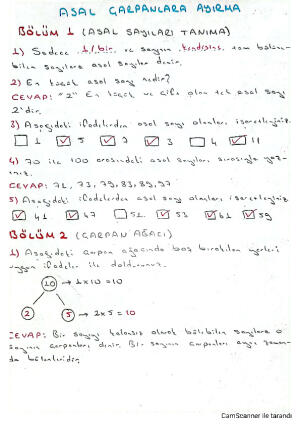 ASAL ÇARPANLARA AYIRMA
BÖLÜM 1 (ASAL SAYILARI TANIMA)
1) Sadece 1/bir ve sayının kendisine tam bölüne-
bilen sayılara asal sayılar denir.
2) En küçük asal sayı nedir?
CEVAP: "2" En küçük ve çift olan tek asal sayı
2'dir.
3) Aşağıdaki ifadelerden asal sayı olanları işaretleyiniz.
1 5 7 3 4 11
4) 70 ile 100 arasındaki asal sayıları sırasıyla yaz-
ınız.
CEVAP: 71, 73, 79, 83, 89, 97
5) Aşağıdaki ifadelerden asal sayı olanları işaretleyiniz.
41 47 51 53 61 59
BÖLÜM 2 (ÇARPAN AĞACI)
1) Aşağıdaki çarpan ağacında boş bırakılan yerleri
uygun ifadeler ile doldurunuz.
10 → 1x10=10
2 5 → 2x5=10
CEVAP: Bir sayıyı kalansız olarak bölebilen sayılara o
sayının çarpanları denir. Bir sayının çarpanları aynı zaman-
da bölenleridir.
CamScanner ile tarandı